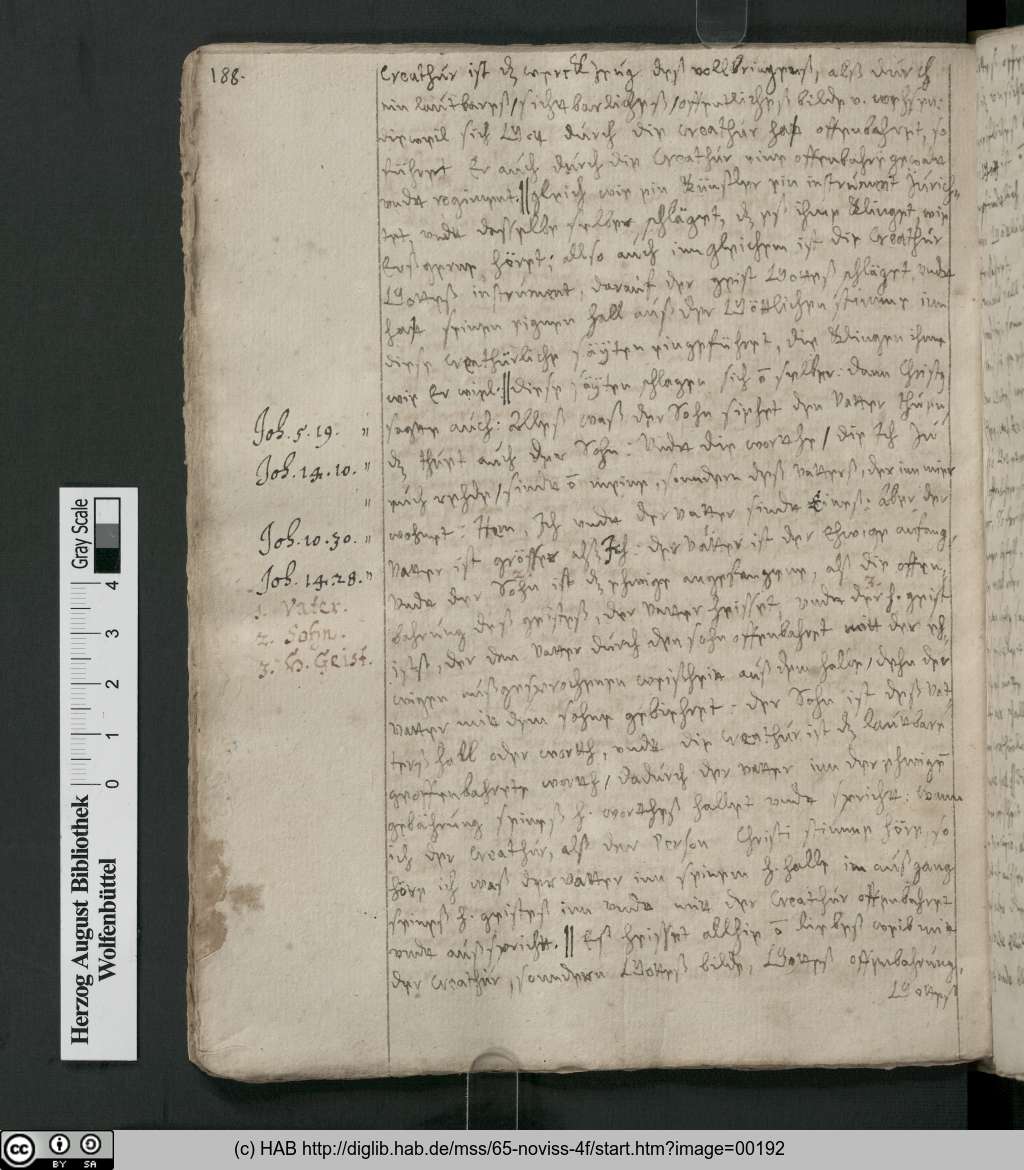 188.
Creathúr ist dz werckzeúg deß vollbringens, alß dúrch
ein laútbareß / sichtbarlicheß / offentlicheß bilde v. weßsen:
dieweil sich Gott dúrch die Creathúr hatt offenbahret, so
führet Er aúch dúrch die Creathúr eine offenbahre gewalt
vndt regiment. || gleich wie ein Künstler ein instrúment zúrich„
tet, vndt dasselbe selber schläget, dz eß ihme klinget, wie
Erß gerne höret; allso aúch im gleichen ist die Creathúr
Gotteß instrúment, daraúf der geist Gotteß schläget, vndt
hatt seinen eignen hall aúß der Göttlichen stimme inn
diese creathürliche säÿten eingeführet, die klingen ihme
wie Er will. || diese säÿten schlagen sich ō selber: dann Christꝰ
sagtte aúch: Alleß waß der Sohn siehet den Vatter thúen,
dz thúet aúch der Sohn: Vndt die worthe / die Ich zú
eúch rehde / sindt ō meine, sonndern deß vatterß, der inn mir
wohnet: Item, Ich vndt der vatter sindt Eineß: Aber der
Vatter ist grösser alß Ich: der Vátter ist der Ehwige anfang,
Vndt der Sohn ist dz ehwige angefangene, alß die offen„
bahrúng deß geisteß, der Vatter heisset, vndt der h. geist
istß, der den Vatter dúrch den sohn offenbahret mitt der eh„
wigen außgesprochenen weißheit auß dem halle / dehn der
Vatter mit dem sohne gebiehret: der Sohn ist deß Vat„
terß hall oder worth, vndt die Creathúr ist dz laútbare
geoffenbahrete worth / dadúrch der vatter inn der ehwigē
gebährúng seineß h. wortheß hallet vndt spricht: Wenn
ich der Creathúr, alß der Person Christi stimme höre, so
höre ich waß der Vatter inn seinem h. halle im aúßgang
seineß h. geisteß inn vndt mit der Creathúr offenbahret
vndt außspricht. || Eß heisset allhie ō liebeß weib mit
der Creathúr, sonndern Gotteß bilde, Gotteß offenbahrúng,
Gotteß
Joh. 5. 19. „
Joh. 14. 10. „
„
Joh. 10. 30. „
Joh. 14. 28. „
1. Vater.
2. Sohn.
3. H. Geist.
Herzog August Bibliothek
Wolfenbüttel
Gray Scale
0 1 2 3 4
cc BY SA
(c) HAB http://diglib.hab.de/mss/65-noviss-4f/start.htm?image=00192